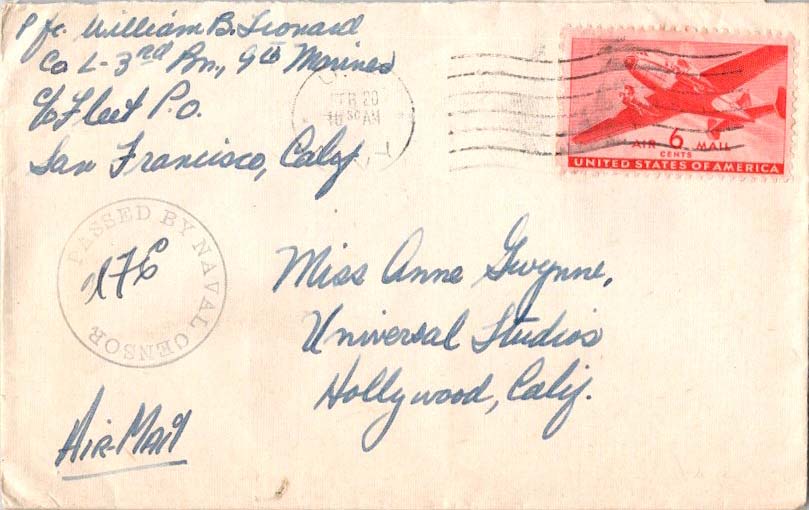 Pfc. William B. Leonard
Co L-3rd Bn., 9th Marines
c/o Fleet P.O.
San Francisco, Calif.
FEB 20
10 30 AM
AIR 6 MAIL
CENTS
UNITED STATES OF AMERICA
PASSED BY NAVAL CENSOR
Miss Anne Gwynne,
Universal Studios
Hollywood, Calif.
AIR-MAIL